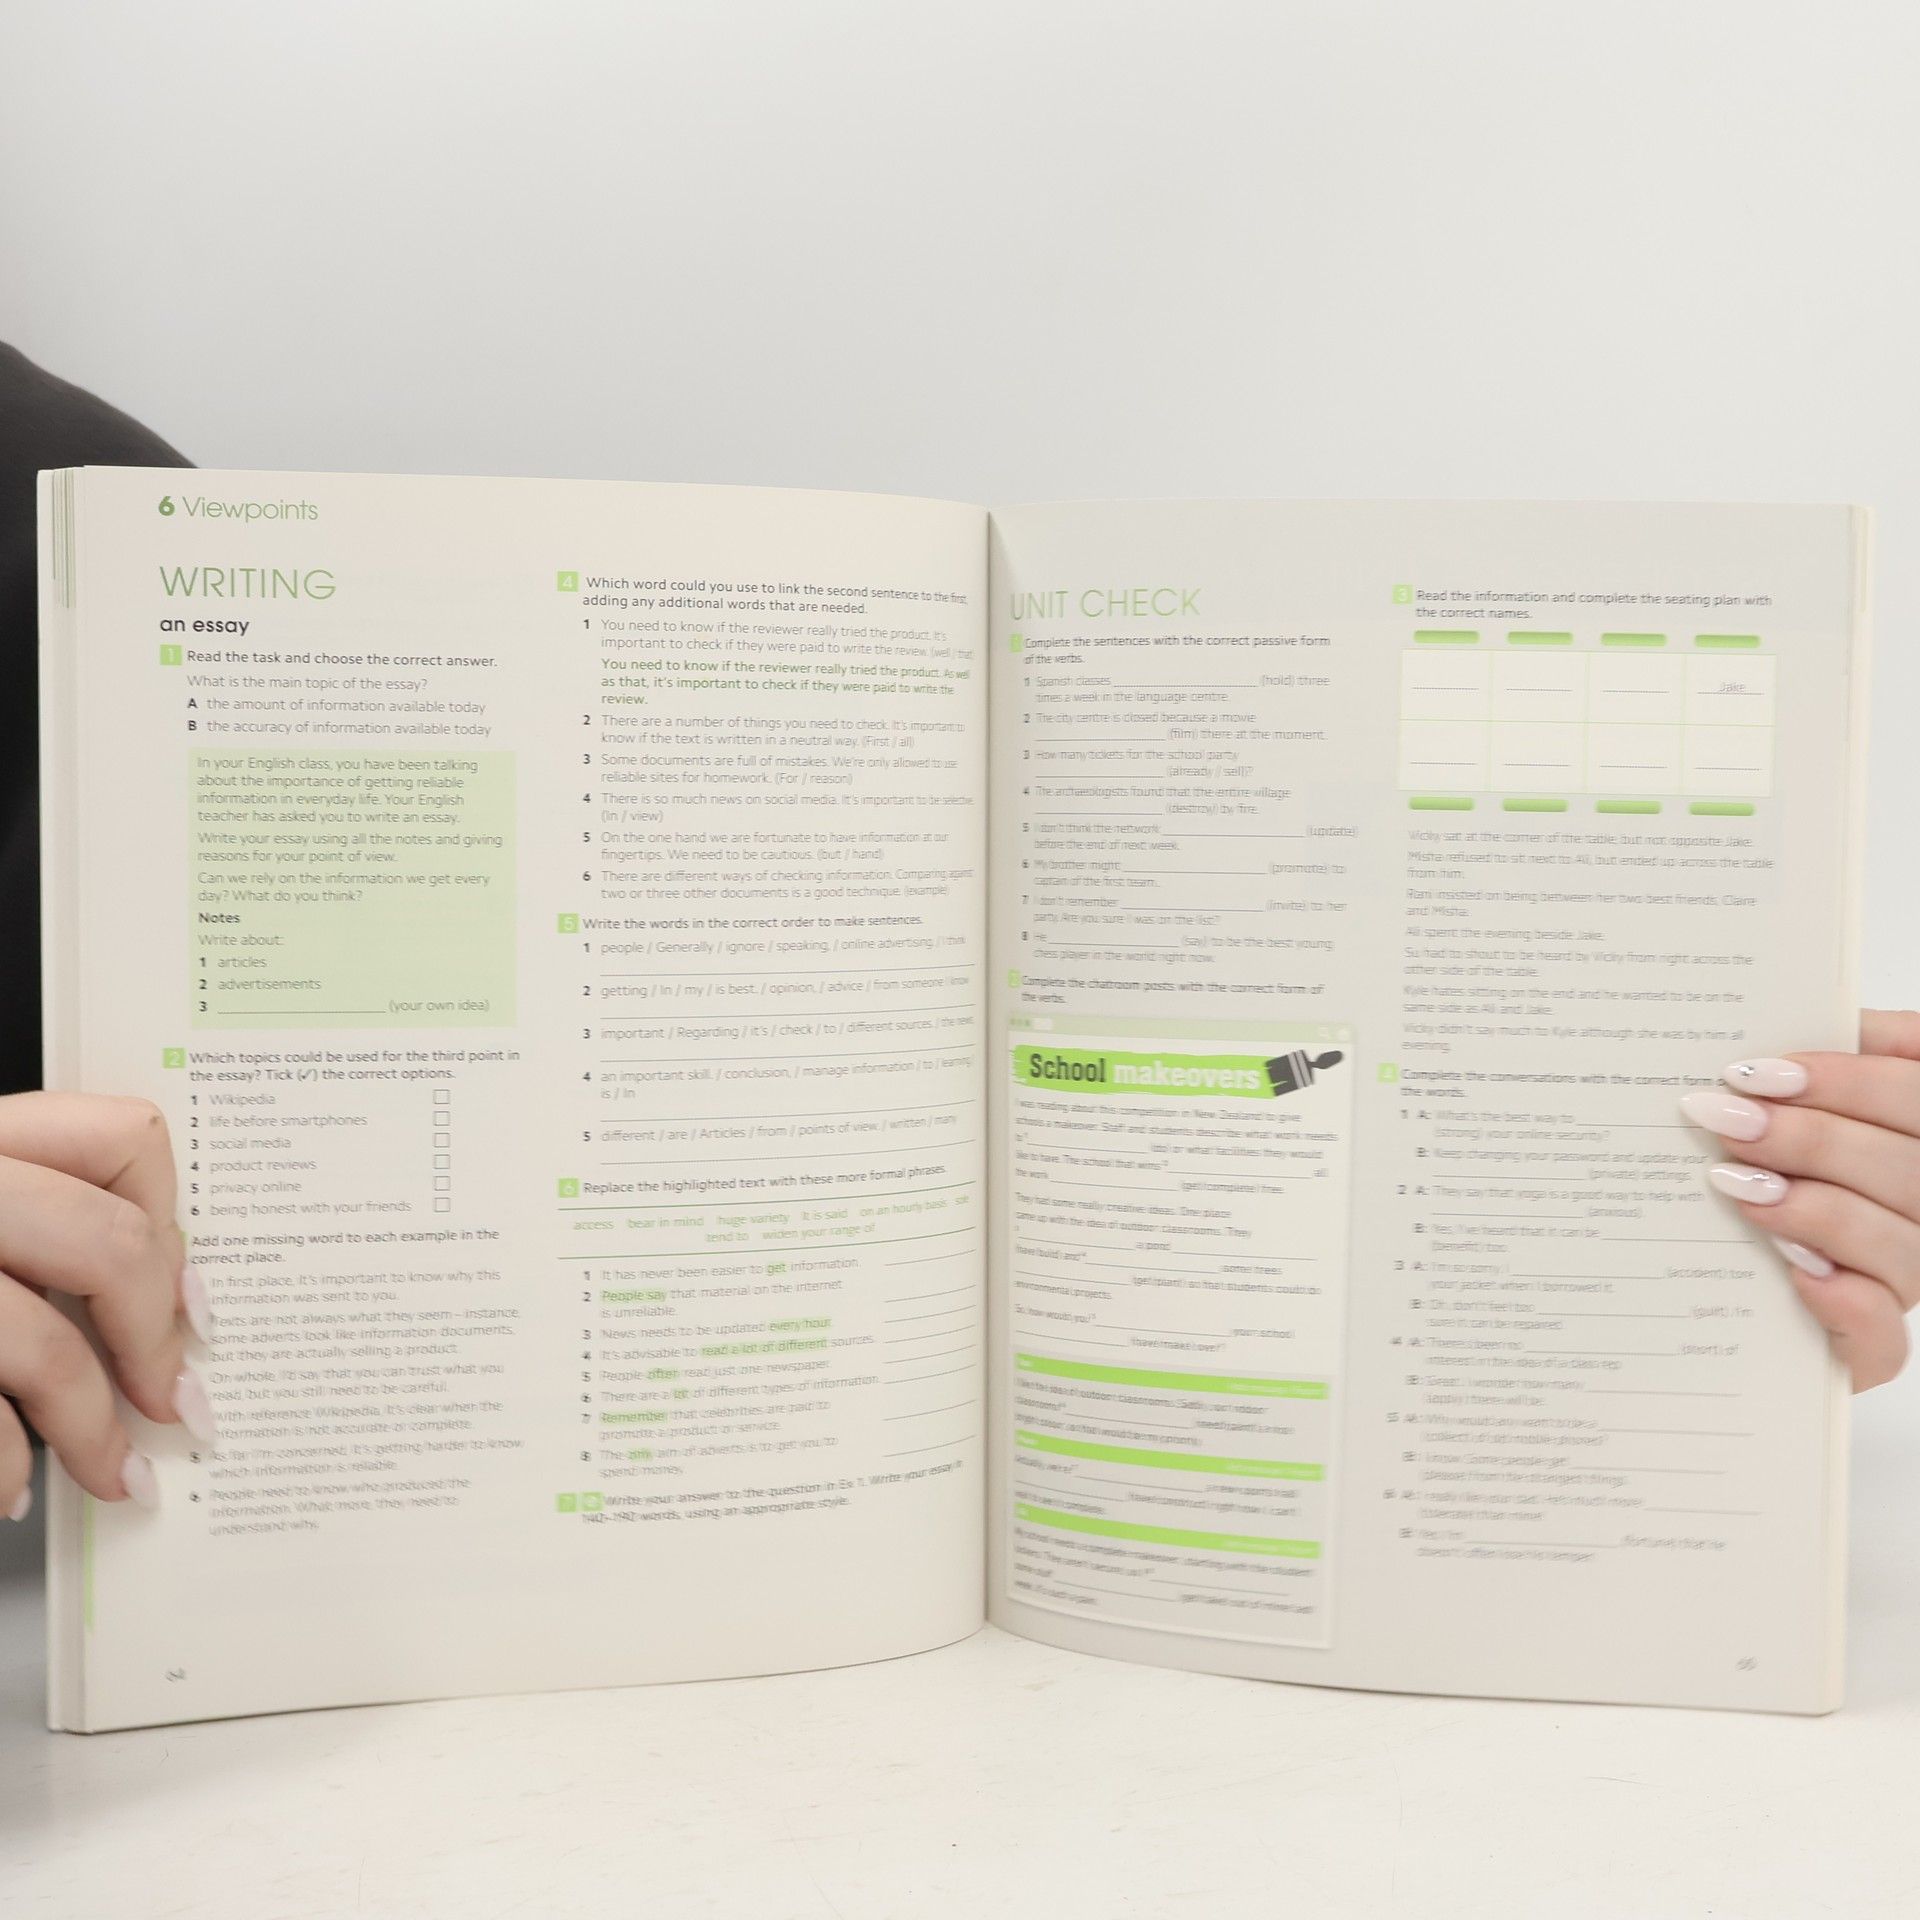 6 Viewpoints
WRITING
an essay
1 Read the task and choose the correct answer.
What is the main topic of the essay?
A the amount of information available today
B the accuracy of information available today
In your English class, you have been talking
about the importance of getting reliable
information in everyday life. Your English
teacher has asked you to write an essay.
Write your essay using all the notes and giving
reasons for your point of view.
Can we rely on the information we get every
day? What do you think?
Notes
Write about:
1 articles
2 advertisements
3 (your own idea)
2 Which topics could be used for the third point in
the essay? Tick (✓) the correct options.
1 Wikipedia
2 life before smartphones
3 social media
4 product reviews
5 privacy online
6 being honest with your friends
Add one missing word to each example in the
correct place.
In first place, it's important to know why this
information was sent to you.
Texts are not always what they seem – instance,
some adverts look like information documents,
but they are actually selling a product.
On whole, I'd say that you can trust what you
read, but you still need to be careful.
With reference Wikipedia, it's clear when the
information is not accurate or complete.
5 As far I'm concerned, it's getting harder to know
which information is reliable.
6 People need to know who produced the
information. What more, they need to
understand why.
4 Which word could you use to link the second sentence to the first,
adding any additional words that are needed.
1 You need to know if the reviewer really tried the product. It's
important to check if they were paid to write the review. (well / that)
You need to know if the reviewer really tried the product. As well
as that, it's important to check if they were paid to write the
review.
2 There are a number of things you need to check. It's important to
know if the text is written in a neutral way. (First / all)
3 Some documents are full of mistakes. We're only allowed to use
reliable sites for homework. (For / reason)
4 There is so much news on social media. It's important to be selective.
(In / view)
5 On the one hand we are fortunate to have information at our
fingertips. We need to be cautious. (but / hand)
6 There are different ways of checking information. Comparing against
two or three other documents is a good technique. (example)
5 Write the words in the correct order to make sentences.
1 people / Generally / ignore / speaking, / online advertising / I think
2 getting / In / my / is best. / opinion, / advice / from someone I know
3 important / Regarding / it's / check / to / different sources. / the news,
4 an important skill. / conclusion, / manage information / to / learning
is / In
5 different / are / Articles / from / points of view. / written / many
6 Replace the highlighted text with these more formal phrases.
access bear in mind huge variety It is said on an hourly basis sole
tend to widen your range of
1 It has never been easier to get information.
2 People say that material on the internet
is unreliable.
3 News needs to be updated every hour.
4 It's advisable to read a lot of different sources.
5 People often read just one newspaper.
6 There are a lot of different types of information.
7 Remember that celebrities are paid to
promote a product or service.
8 The only aim of adverts is to get you to
spend money.
7 Write your answer to the question in Ex 1. Write your essay in
140–190 words, using an appropriate style.
UNIT CHECK
1 Complete the sentences with the correct passive form
of the verbs.
1 Spanish classes (hold) three
times a week in the language centre.
2 The city centre is closed because a movie
(film) there at the moment.
3 How many tickets for the school party
(already / sell)?
4 The archaeologists found that the entire village
(destroy) by fire.
5 I don't think the network (update)
before the end of next week.
6 My brother might (promote) to
captain of the first team.
7 I don't remember (invite) to her
party. Are you sure I was on the list?
8 He (say) to be the best young
chess player in the world right now.
2 Complete the chatroom posts with the correct form of
the verbs.
School makeovers
I was reading about this competition in New Zealand to give
schools a makeover. Staff and students describe what work needs
(do) or what facilities they would
like to have. The school that wins all
the work (get / complete) free.
They had some really creative ideas. One place
came up with the idea of outdoor classrooms. They
a pond
(have / build) and some trees
(get / plant) so that students could do
environmental projects.
So, how would you your school
(have / make over)?
3 Read the information and complete the seating plan with
the correct names.
Jake
Vicky sat at the corner of the table, but not opposite Jake.
Misha refused to sit next to Ali, but ended up across the table
from him.
Rani insisted on being between her two best friends, Claire
and Misha.
Ali spent the evening beside Jake.
Su had to shout to be heard by Vicky from right across the
other side of the table.
Kyle hates sitting on the end and he wanted to be on the
same side as Ali and Jake.
Vicky didn't say much to Kyle although she was by him all
evening.
4 Complete the conversations with the correct form
the words.
1 A: What's the best way to
(strong) your online security?
B: Keep changing your password and update your
(private) settings.
2 A: They say that yoga is a good way to help with
(anxious).
B: Yes, I've heard that it can be
(benefit) too.
3 A: I'm so sorry, I (accident) tore
your jacket when I borrowed it.
B: Oh, don't feel too (guilt). I'm
sure it can be repaired.